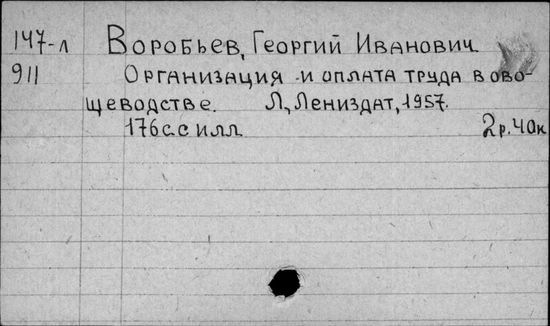 147-л Воробьев, Георгий Иванович
911 Организация и оплата труда в ово-
щеводстве. Л, Лениздат, 1957.
176с.с илл 2р.40к